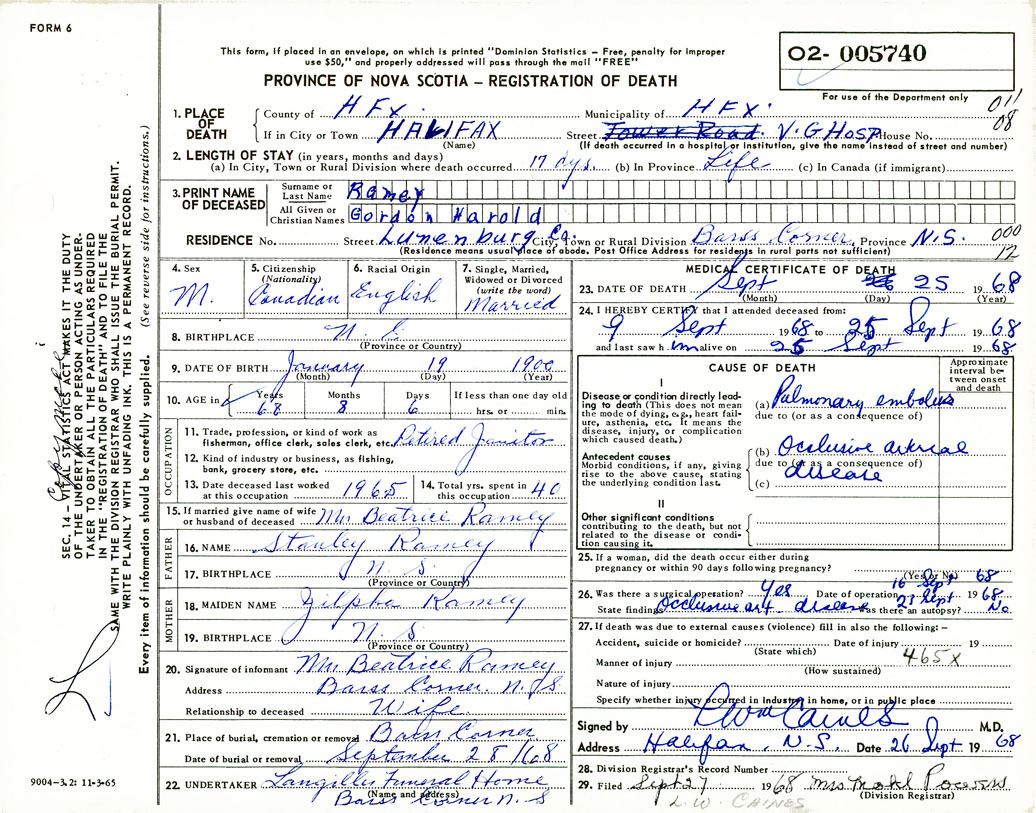 FORM 6
This form, if placed in an envelope, on which is printed "Dominion Statistics – Free, penalty for improper
use $50," and properly addressed will pass through the mail "FREE"
PROVINCE OF NOVA SCOTIA – REGISTRATION OF DEATH
02- 005740
For use of the Department only
011
08
1. PLACE OF DEATH
County of HFX. Municipality of HFX.
If in City or Town HALIFAX Street Tower Road. V.G Hosp House No.
(Name) (If death occurred in a hospital or institution, give the name instead of street and number)
2. LENGTH OF STAY (in years, months and days)
(a) In City, Town or Rural Division where death occurred 17 dys. (b) In Province Life (c) In Canada (if immigrant)
3. PRINT NAME OF DECEASED
Surname or Last Name Ramey
All Given or Christian Names Gordon Harold
RESIDENCE No. Street Lunenburg Co. City, Town or Rural Division Barss Corner, Province N.S. 000
(Residence means usual place of abode. Post Office Address for residents in rural parts not sufficient) 12
4. Sex M.
5. Citizenship (Nationality) Canadian
6. Racial Origin English
7. Single, Married, Widowed or Divorced (write the word) Married
8. BIRTHPLACE N. S.
(Province or Country)
9. DATE OF BIRTH January 19 1900
(Month) (Day) (Year)
10. AGE in Years 68 Months 8 Days 6 If less than one day old hrs. or min.
OCCUPATION
11. Trade, profession, or kind of work as fisherman, office clerk, sales clerk, etc. Retired Janitor
12. Kind of industry or business, as fishing, bank, grocery store, etc.
13. Date deceased last worked at this occupation 1965
14. Total yrs. spent in this occupation 40
15. If married give name of wife or husband of deceased Mrs Beatrice Ramey
FATHER
16. NAME Stanley Ramey
17. BIRTHPLACE N. S.
(Province or Country)
MOTHER
18. MAIDEN NAME Zilpha Ramey
19. BIRTHPLACE N. S
(Province or Country)
20. Signature of informant Mrs. Beatrice Ramey
Address Barss Corner. N.S
Relationship to deceased Wife
21. Place of burial, cremation or removal Barss Corner
Date of burial or removal September 28/68
22. UNDERTAKER Langilles Funeral Home
(Name and address) Barss Corner N.S
MEDICAL CERTIFICATE OF DEATH
23. DATE OF DEATH Sept 26 25 1968
(Month) (Day) (Year)
24. I HEREBY CERTIFY that I attended deceased from:
9 Sept 1968 to 25 Sept 1968
and last saw him alive on 25 Sept 1968
CAUSE OF DEATH
Approximate interval between onset and death
I
Disease or condition directly leading to death (This does not mean the mode of dying, e.g., heart failure, asthenia, etc. It means the disease, injury, or complication which caused death.)
(a) Pulmonary embolus
due to (or as a consequence of)
Antecedent causes
Morbid conditions, if any, giving rise to the above cause, stating the underlying condition last.
(b) Occlusive arterial
due to (or as a consequence of)
(c) disease
II
Other significant conditions
contributing to the death, but not related to the disease or condition causing it.
25. If a woman, did the death occur either during
pregnancy or within 90 days following pregnancy? (Yes or No)
16 Sept 68
26. Was there a surgical operation? Yes Date of operation 21 Sept 1968
State findings Occlusive art. disease Was there an autopsy? No
27. If death was due to external causes (violence) fill in also the following:–
Accident, suicide or homicide? Date of injury 19
(State which) 465x
Manner of injury
(How sustained)
Nature of injury
Specify whether injury occurred in industry, in home, or in public place
Signed by L Wm Caines M.D.
Address Halifax, N.S. Date 26 Sept 1968
28. Division Registrar's Record Number
29. Filed Sept 27 1968 Mrs
(Division Registrar)
L.W. CAINES
SEC. 14 – VITAL STATISTICS ACT MAKES IT THE DUTY
OF THE UNDERTAKER OR PERSON ACTING AS UNDER-
TAKER TO OBTAIN ALL THE PARTICULARS REQUIRED
IN THE "REGISTRATION OF DEATH" AND TO FILE THE
SAME WITH THE DIVISION REGISTRAR WHO SHALL ISSUE THE BURIAL PERMIT.
WRITE PLAINLY WITH UNFADING INK. THIS IS A PERMANENT RECORD.
Every item of information should be carefully supplied. (See reverse side for instructions.)
9004–3.2: 11-3-65